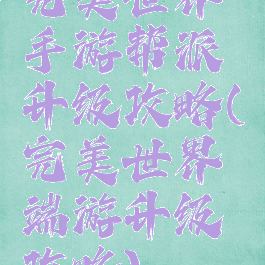 完美世界
手游帮派
升级攻略(
完美世界
端游升级
攻略)